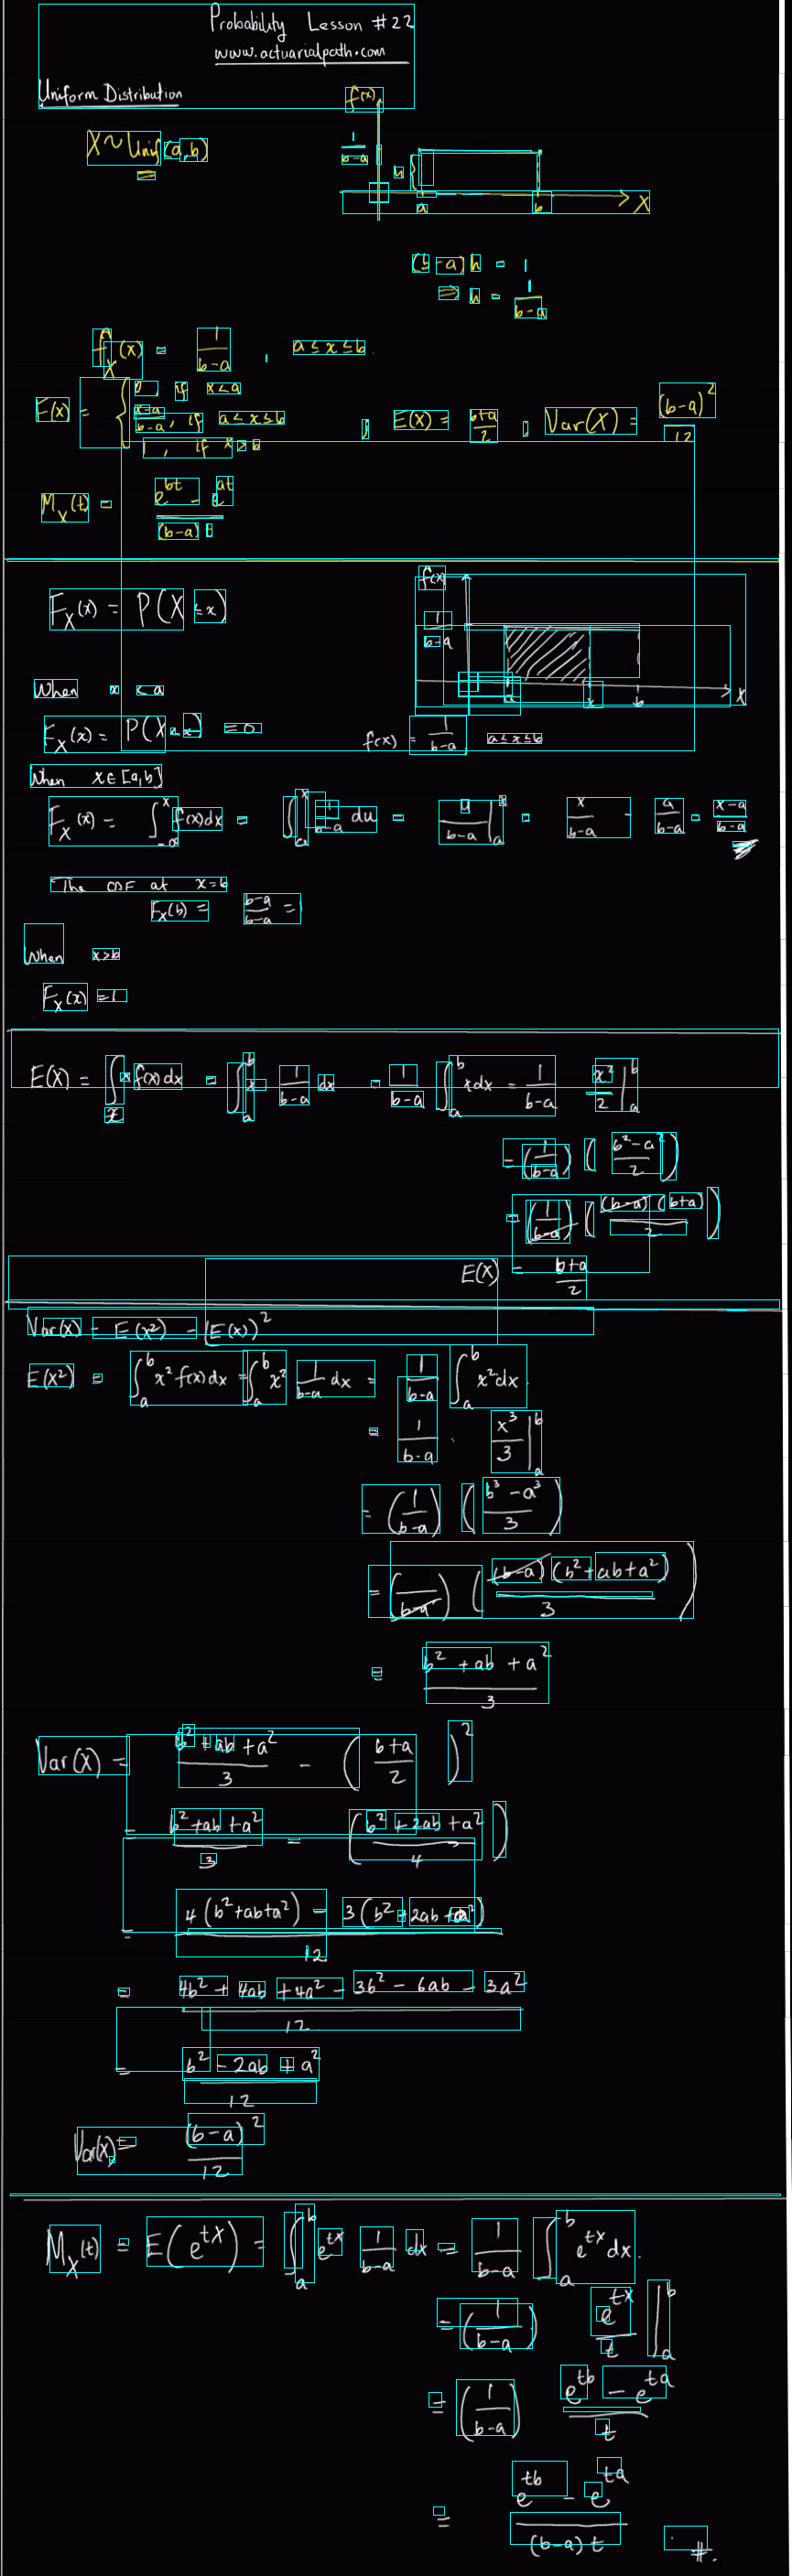 Probability Lesson #22
www.actuarialpath.com
Uniform Distribution
f(x)
X ~ Unif (a,b)
1/(b-a)
h {
a b X
(b-a) h = 1
⇒ h = 1/(b-a)
f_X(x) = 1/(b-a) , a ≤ x ≤ b.
F(x) = { 0, if x<a
(x-a)/(b-a), if a ≤ x ≤ b
1, if x > b
, E(X) = (b+a)/2 , Var(X) = (b-a)^2/12
M_X(t) = (e^bt - e^at)/((b-a)t)
f(x)
F_X(x) = P(X ≤ x)
1/(b-a)
When x < a
a x b X
F_X(x) = P(X ≤ x) = 0
f(x) = 1/(b-a) a ≤ x ≤ b
When x ∈ [a,b]
F_X(x) = ∫_{-∞}^x f(x)dx = ∫_a^x 1/(b-a) du = u/(b-a) |_a^x = x/(b-a) - a/(b-a) = (x-a)/(b-a)
The CDF at x=b
F_X(b) = (b-a)/(b-a) = 1
When x>b
F_X(x) = 1
E(X) = ∫_x x f(x)dx = ∫_a^b x 1/(b-a) dx = 1/(b-a) ∫_a^b xdx = 1/(b-a) x^2/2 |_a^b
= (1/(b-a)) ((b^2-a^2)/2)
= (1/(b-a)) ((b-a)(b+a)/2)
E(X) = (b+a)/2
Var(X) = E(X^2) - (E(X))^2
E(X^2) = ∫_a^b x^2 f(x)dx = ∫_a^b x^2 1/(b-a) dx = 1/(b-a) ∫_a^b x^2 dx
= 1/(b-a) . x^3/3 |_a^b
= (1/(b-a)) ((b^3 - a^3)/3)
= (1/(b-a)) ((b-a)(b^2+ab+a^2)/3)
= (b^2 + ab + a^2)/3
Var(X) = (b^2 + ab + a^2)/3 - ((b+a)/2)^2
= (b^2 + ab + a^2)/3 - ((b^2 + 2ab + a^2)/4)
= (4(b^2+ab+a^2) - 3(b^2+2ab+a^2))/12
= (4b^2 + 4ab + 4a^2 - 3b^2 - 6ab - 3a^2)/12
= (b^2 - 2ab + a^2)/12
Var(X) = (b-a)^2/12
M_X(t) = E(e^tX) = ∫_a^b e^tx 1/(b-a) dx = 1/(b-a) ∫_a^b e^tx dx.
= (1/(b-a)) e^tx/t |_a^b
= (1/(b-a)) (e^tb - e^ta)/t
= (e^tb - e^ta)/((b-a)t) . #.